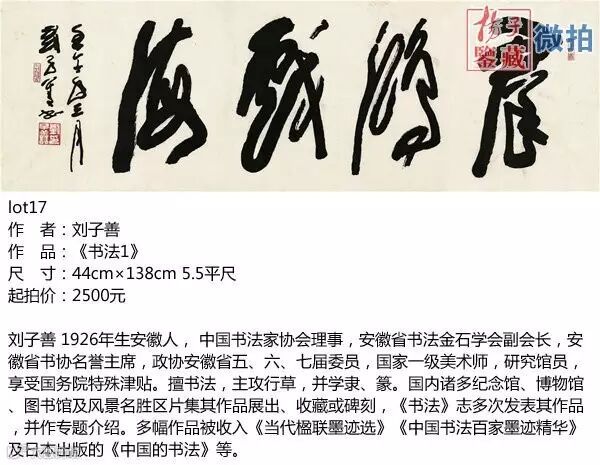 群鴻戲海
壬午 三月
劉子善书
揚子
鑒藏
微拍
lot17
作 者：刘子善
作 品：《书法1》
尺 寸：44cm×138cm 5.5平尺
起拍价：2500元
刘子善 1926年生安徽人， 中国书法家协会理事，安徽省书法金石学会副会长，安
徽省书协名誉主席，政协安徽省五、六、七届委员，国家一级美术师，研究馆员，
享受国务院特殊津贴。擅书法，主攻行草，并学隶、篆。国内诸多纪念馆、博物馆
、图书馆及风景名胜区片集其作品展出、收藏或碑刻，《书法》志多次发表其作品
，并作专题介绍。多幅作品被收入《当代楹联墨迹选》《中国书法百家墨迹精华》
及日本出版的《中国的书法》等。